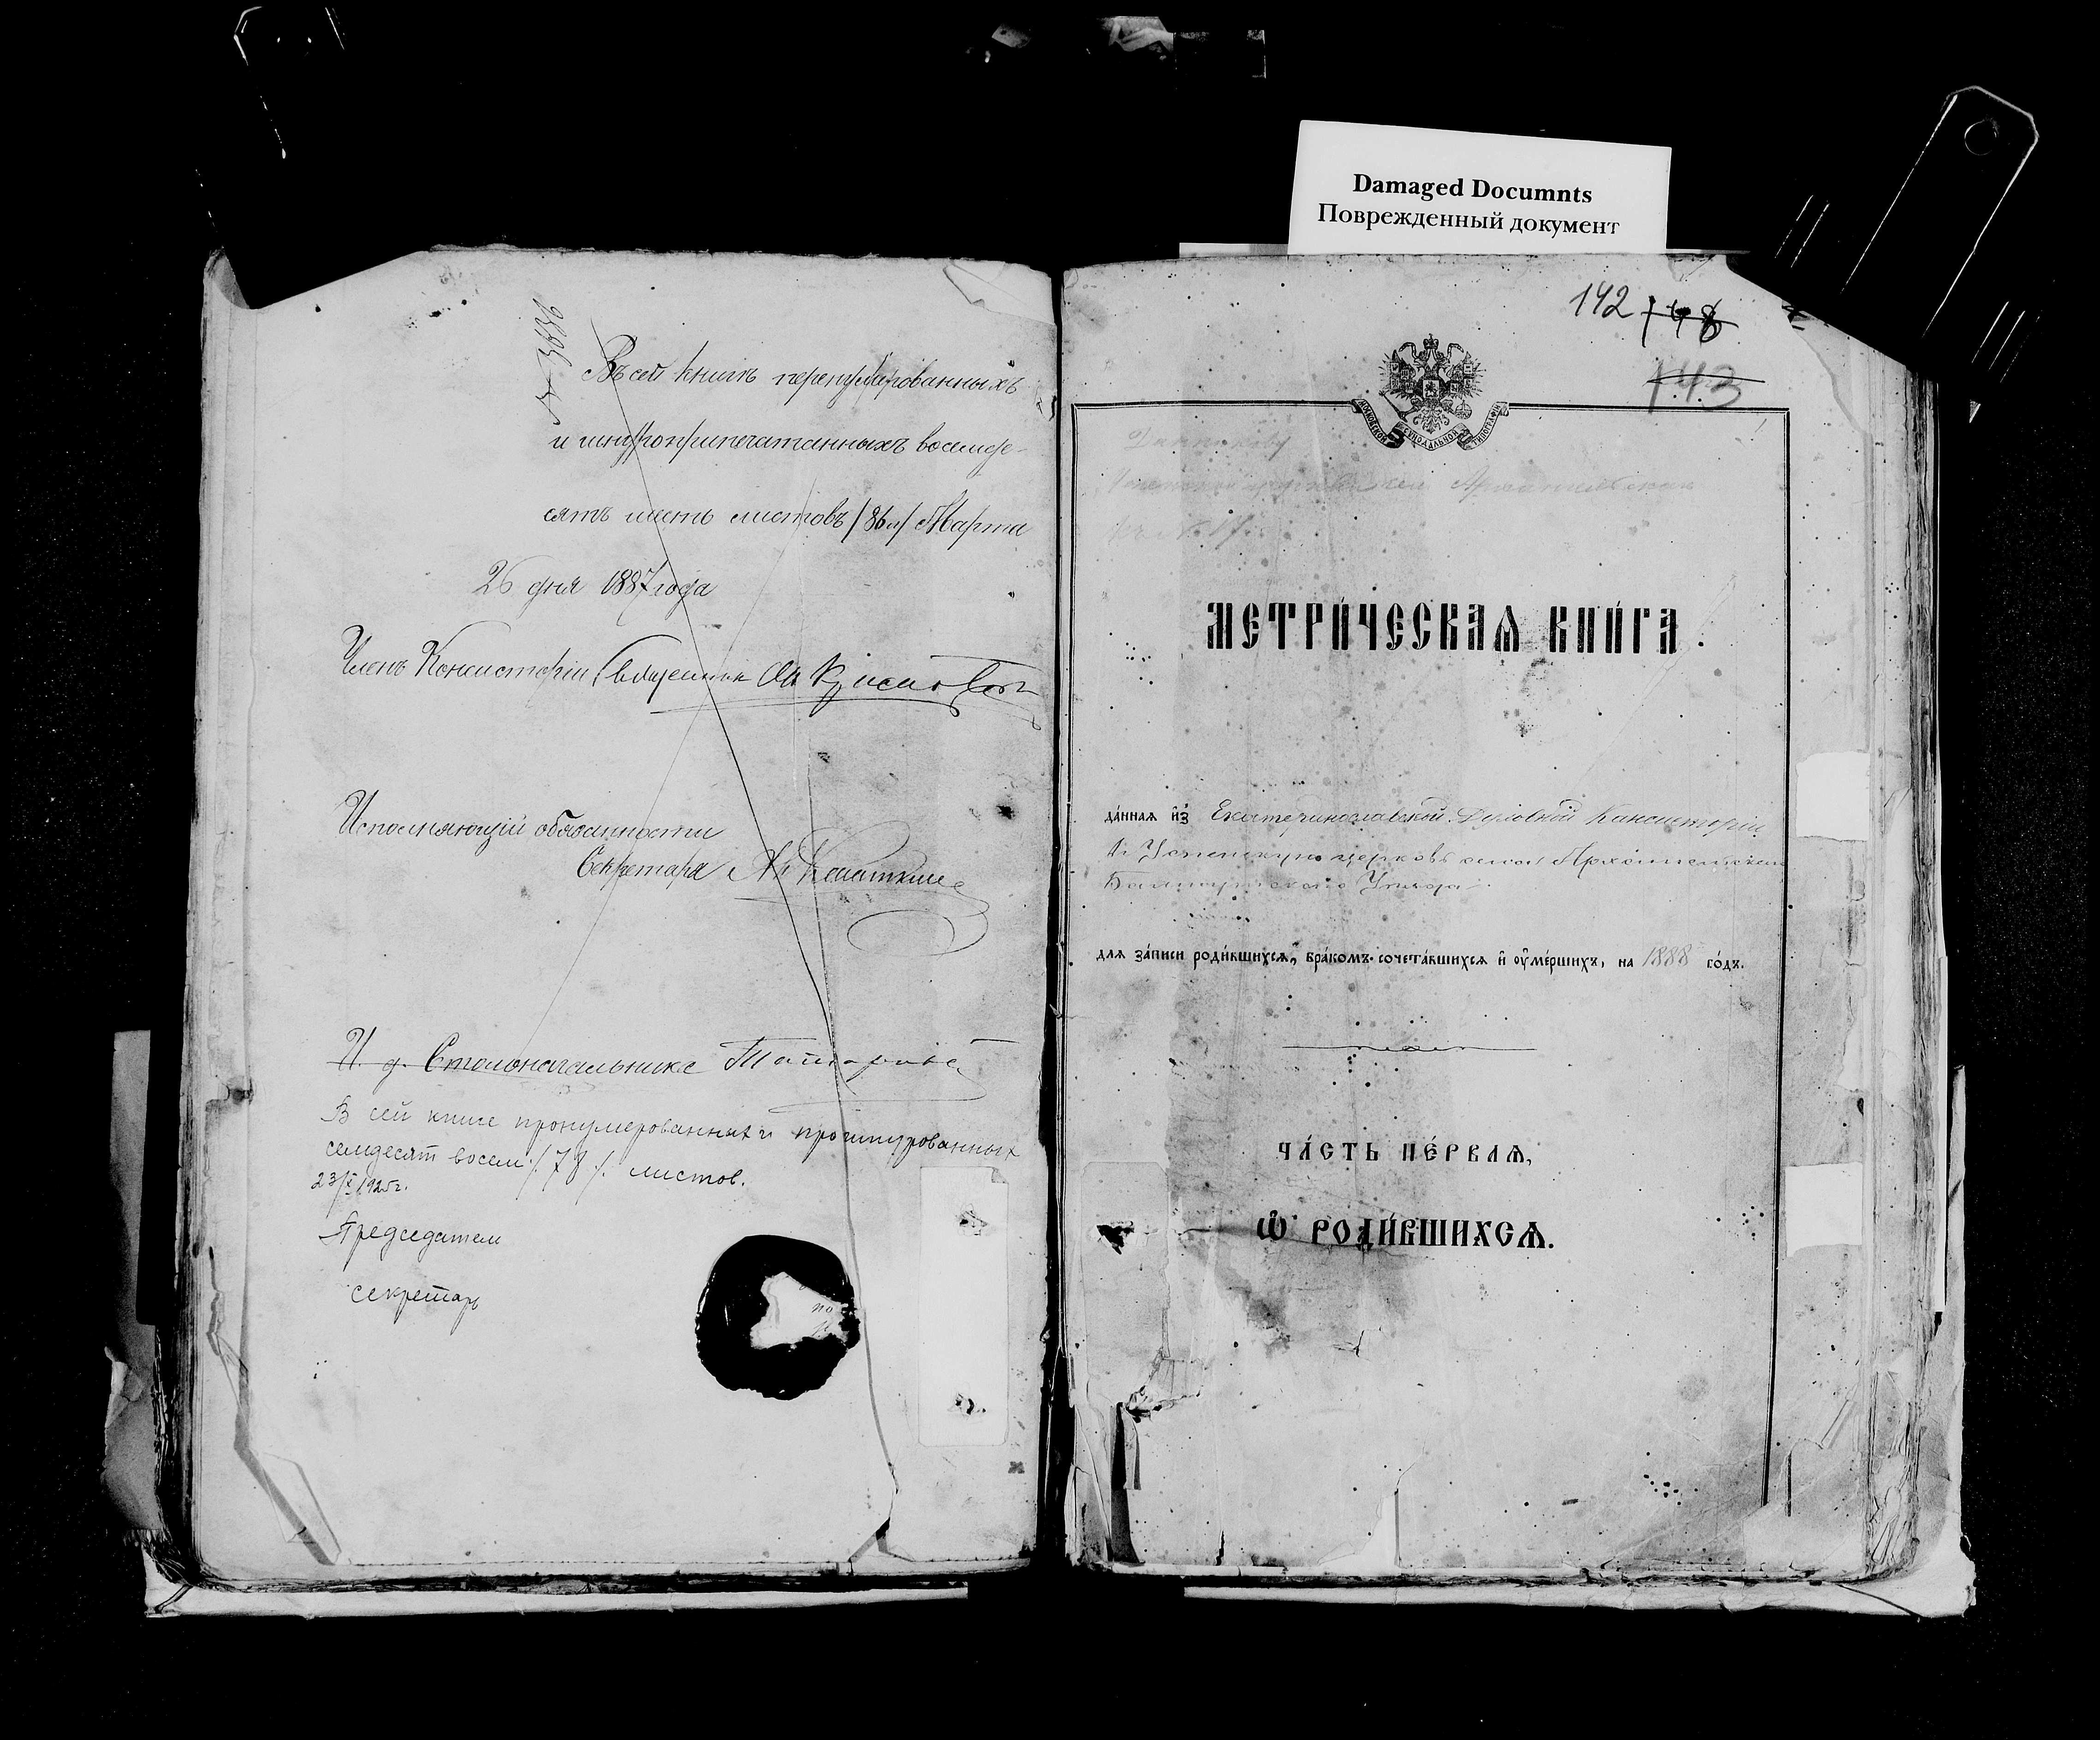 Damaged Documnts
Поврежденный документ
№ 3636
Въ сей книгѣ перенумерованныхъ
и шнуроприпечатанныхъ восемьде-
сятъ шесть листовъ /86 л/ Марта
26 дня 1887 года
Членъ Консисторіи Священник
Исполняющій обязанности
Секретаря
И. д. Столоначальника
В сей книге пронумерованных и прошнурованных
семдесят восем /78/. листов.
23/X 1925г.
Председатель
секретарь
142 148
143
МОСКОВСКОЙ СѴНОДАЛЬНОЙ ТИПОГРАФІИ
МЕТРИ́ЧЕСКАѦ КНИ́ГА.
да́нная и҆з̾ Екатеринославской Духовной Консисторіи
въ Успенскую церковь села Архангельскаго
Бахмутского Уѣзда.
для за́писи роди́вшихся, бра́комъ сочета́вшихся и҆ оу҆ме́ршихъ, на 1888 го́дъ.
ЧА́СТЬ ПЕ́РВАѦ,
Ѡ҆ РОДИ́ВШИХСѦ.